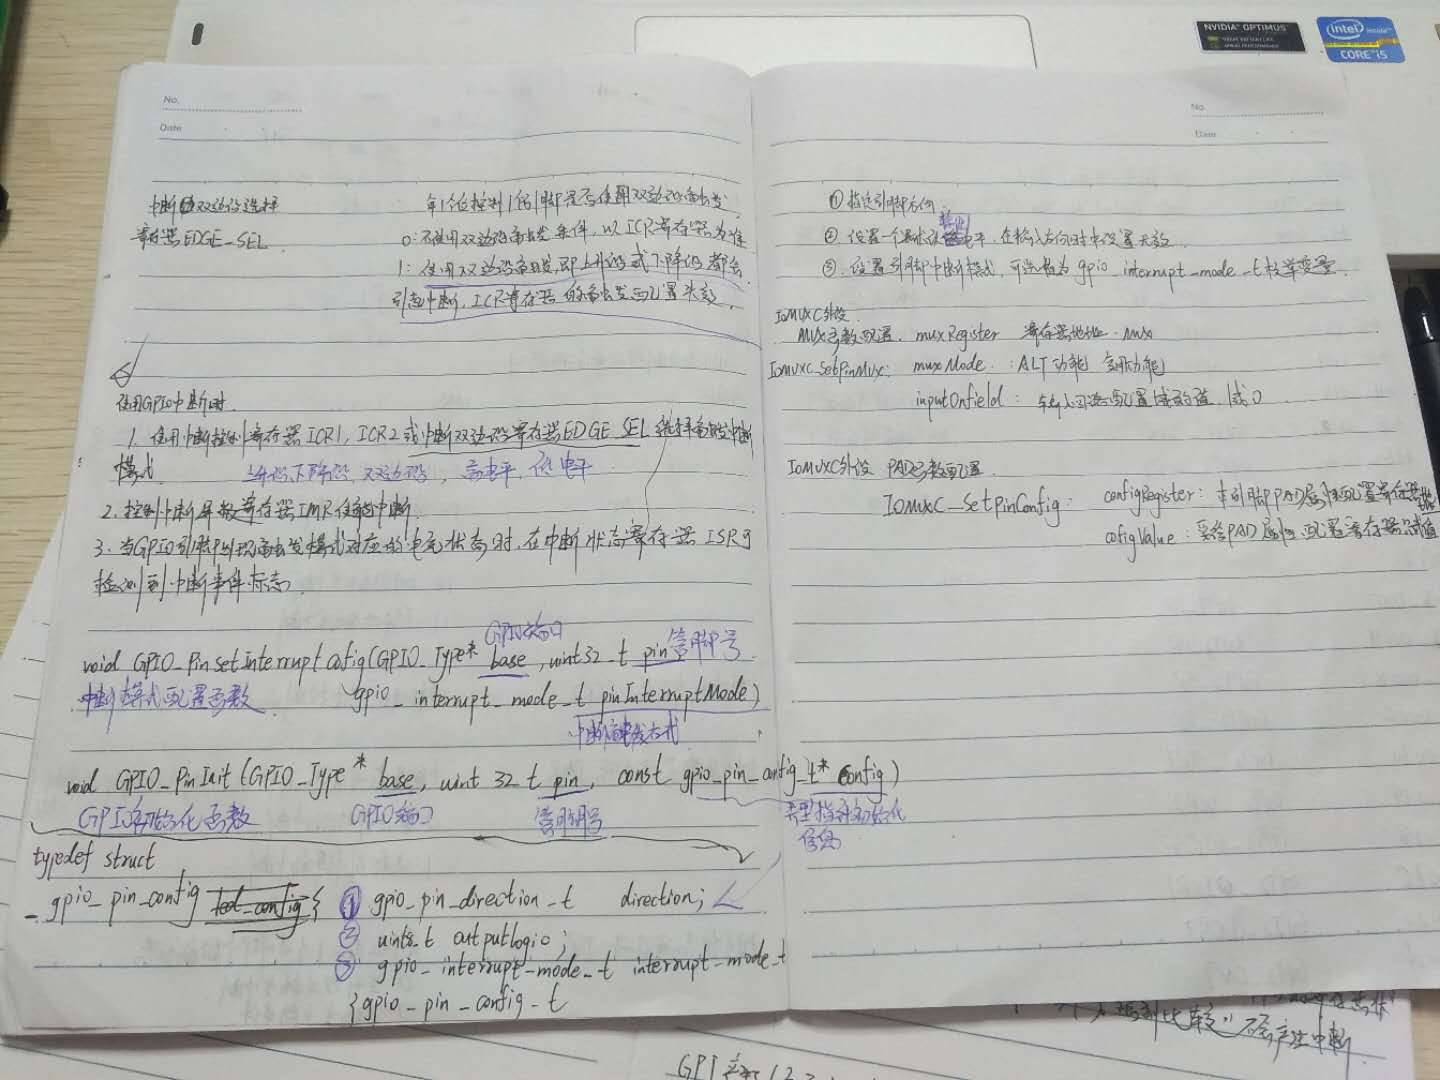 NVIDIA OPTIMUS
intel inside
CORE i5
No.
Date
中断双边沿选择
寄存器 EDGE_SEL
每1个位控制1個引脚是否使用双边沿触发
0: 不使用双边沿触发条件, 以ICR寄存器为准
1: 使用双边沿触发, 即上升沿或下降沿都会
引起中断, ICR寄存器的触发配置失效.
使用GPIO中断时.
1. 使用中断控制寄存器ICR1, ICR2或中断双边沿寄存器EDGE_SEL选择触发中断
模式
上升沿、下降沿、双边沿、高电平、低电平
2. 控制中断屏蔽寄存器IMR使能中断.
3. 当GPIO引脚出现触发模式对应的电平状态时, 在中断状态寄存器ISR可
检测到中断事件标志.
GPIO端口
void GPIO_PinsetInterruptconfig(GPIO_Type* base, uint32_t pin 管脚号
中断模式配置函数
gpio_interrupt_mode_t pinInterruptMode)
中断触发方式
void GPIO_PinInit (GPIO_Type* base, uint 32_t pin, const gpio_pin_config_t* config)
GPIO初始化函数 GPIO端口 管脚号 类型指针初始化
信息
typedef struct
_gpio_pin_config {
① gpio_pin_direction_t direction;
② uint8_t outputlogic;
③ gpio_interrupt_mode_t interrupt_mode_t
}gpio_pin_config_t
No.
Date
① 指定引脚方向.
② 设置一个默认电平, 在输入方向时中设置无效
③ 设置引脚中断模式, 可选值为 gpio_interrupt_mode_t枚举变量.
IOMUXC外设
MUX函数配置. muxRegister 寄存器地址. mux
IOMUXC_SetPinMux: muxMode: ALT功能 复用功能
inputOnfield: 输入回路配置域的值 1或0
IOMUXC外设 PAD函数配置
IOMUXC_SetPinConfig: configRegister: 本引脚PAD属性配置寄存器地
cofigValue: 要给PAD属性配置寄存器赋值